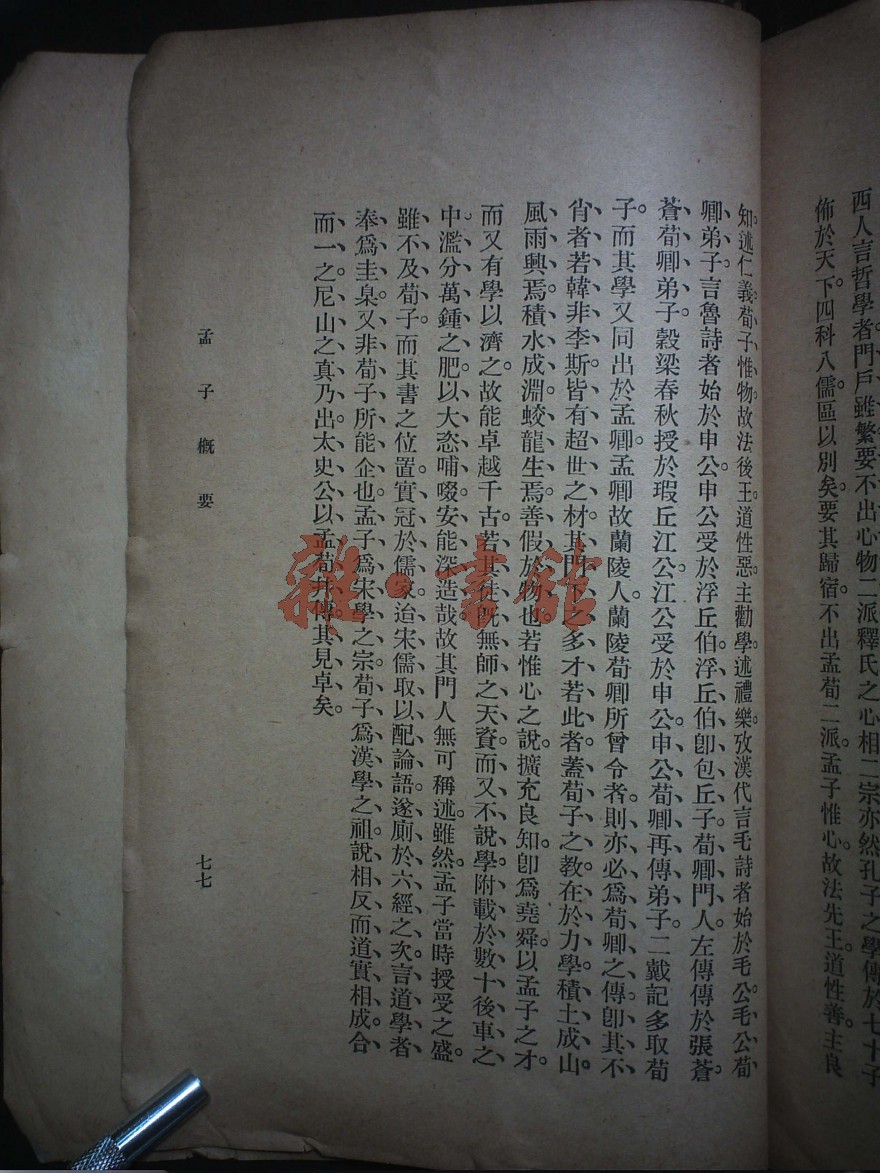 西人言哲學者門戶雖繁要不出心物二派釋氏之心相二宗亦然孔子之學傳於七十子
佈於天下四科八儒區以別矣要其歸宿不出孟荀二派孟子惟心故法先王道性善主良
知述仁義荀子惟物故法後王道性惡主勸學述禮樂攷漢代言毛詩者始於毛公毛公荀
卿弟子言魯詩者始於申公申公受於浮丘伯浮丘伯卽包丘子荀卿門人左傳傳於張蒼
蒼荀卿弟子穀梁春秋授於瑕丘江公江公受於申公申公荀卿再傳弟子二戴記多取荀
子而其學又同出於孟卿孟卿故蘭陵人蘭陵荀卿所曾令者則亦必爲荀卿之傳卽其不
肖者若韓非李斯皆有超世之材其門下之多才若此者蓋荀子之教在於力學積土成山
風雨興焉積水成淵蛟龍生焉善假於物也若惟心之說擴充良知卽爲堯舜以孟子之才
而又有學以濟之故能卓越千古若其徒既無師之天資而又不說學附載於數十後車之
中濫分萬鍾之肥以大恣哺啜安能深造哉故其門人無可稱述雖然孟子當時授受之盛
雖不及荀子而其書之位置實冠於儒家治宋儒取以配論語遂廁於六經之次言道學者
奉爲圭臬又非荀子所能企也孟子爲宋學之宗荀子爲漢學之祖說相反而道實相成合
而一之尼山之真乃出太史公以孟荀并傳其見卓矣
孟子概要
七七
雜·書館